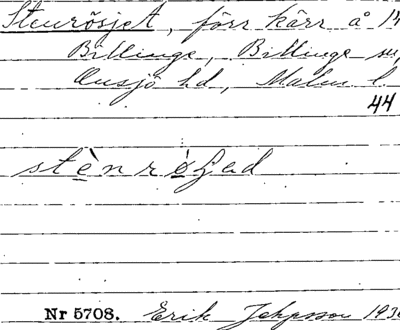 Stenrösjet, förr kärr å 14
Billinge, Billinge sn,
Onsjö hd, Malm. l.
44
stènròʃad
Nr 5708. Erik Jeppsson 193